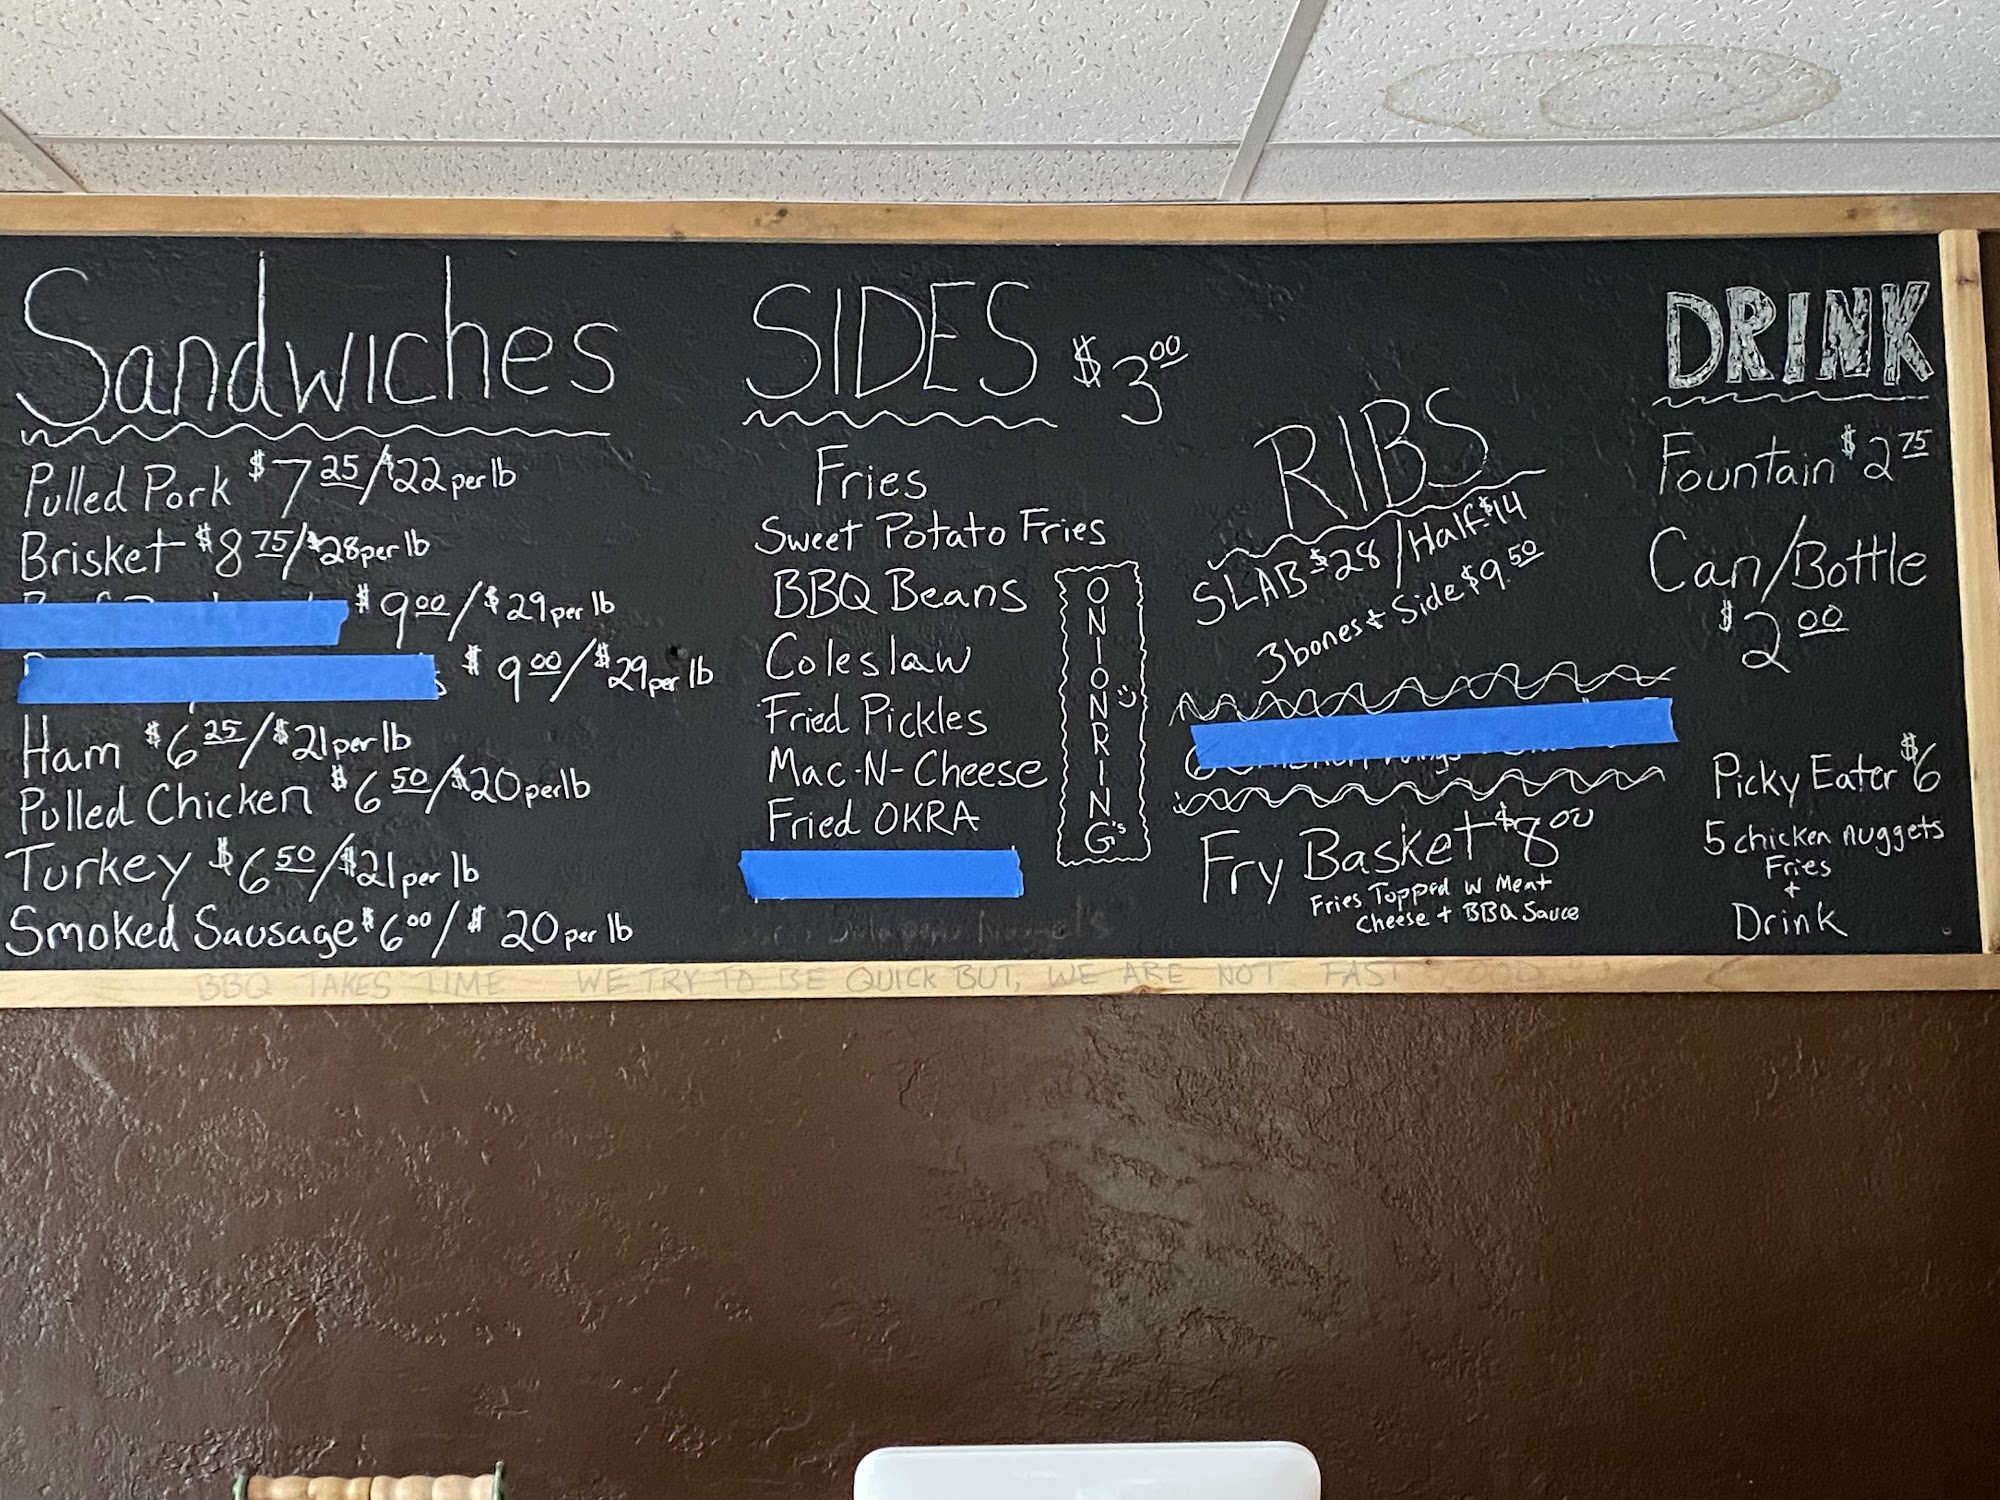 Sandwiches
Pulled Pork $7 25/$22 per lb
Brisket $8 75/$28 per lb
$9 00/$29 per lb
$9 00/$29 per lb
Ham $6 25/$21 per lb
Pulled Chicken $6 50/$20 per lb
Turkey $6 50/$21 per lb
Smoked Sausage $6 00/$20 per lb
SIDES $3 00
Fries
Sweet Potato Fries
BBQ Beans
Coleslaw
Fried Pickles
Mac-N-Cheese
Fried OKRA
ONIONRING's
RIBS
SLAB $28/Half $14
3 bones + Side $9.50
Fry Basket $8 00
Fries Topped w Meat
Cheese + BBQ Sauce
DRINK
Fountain $2 75
Can/Bottle
$2 00
Picky Eater $6
5 chicken nuggets
Fries
+
Drink
BBQ TAKES TIME WE TRY TO BE QUICK BUT, WE ARE NOT FAST FOOD